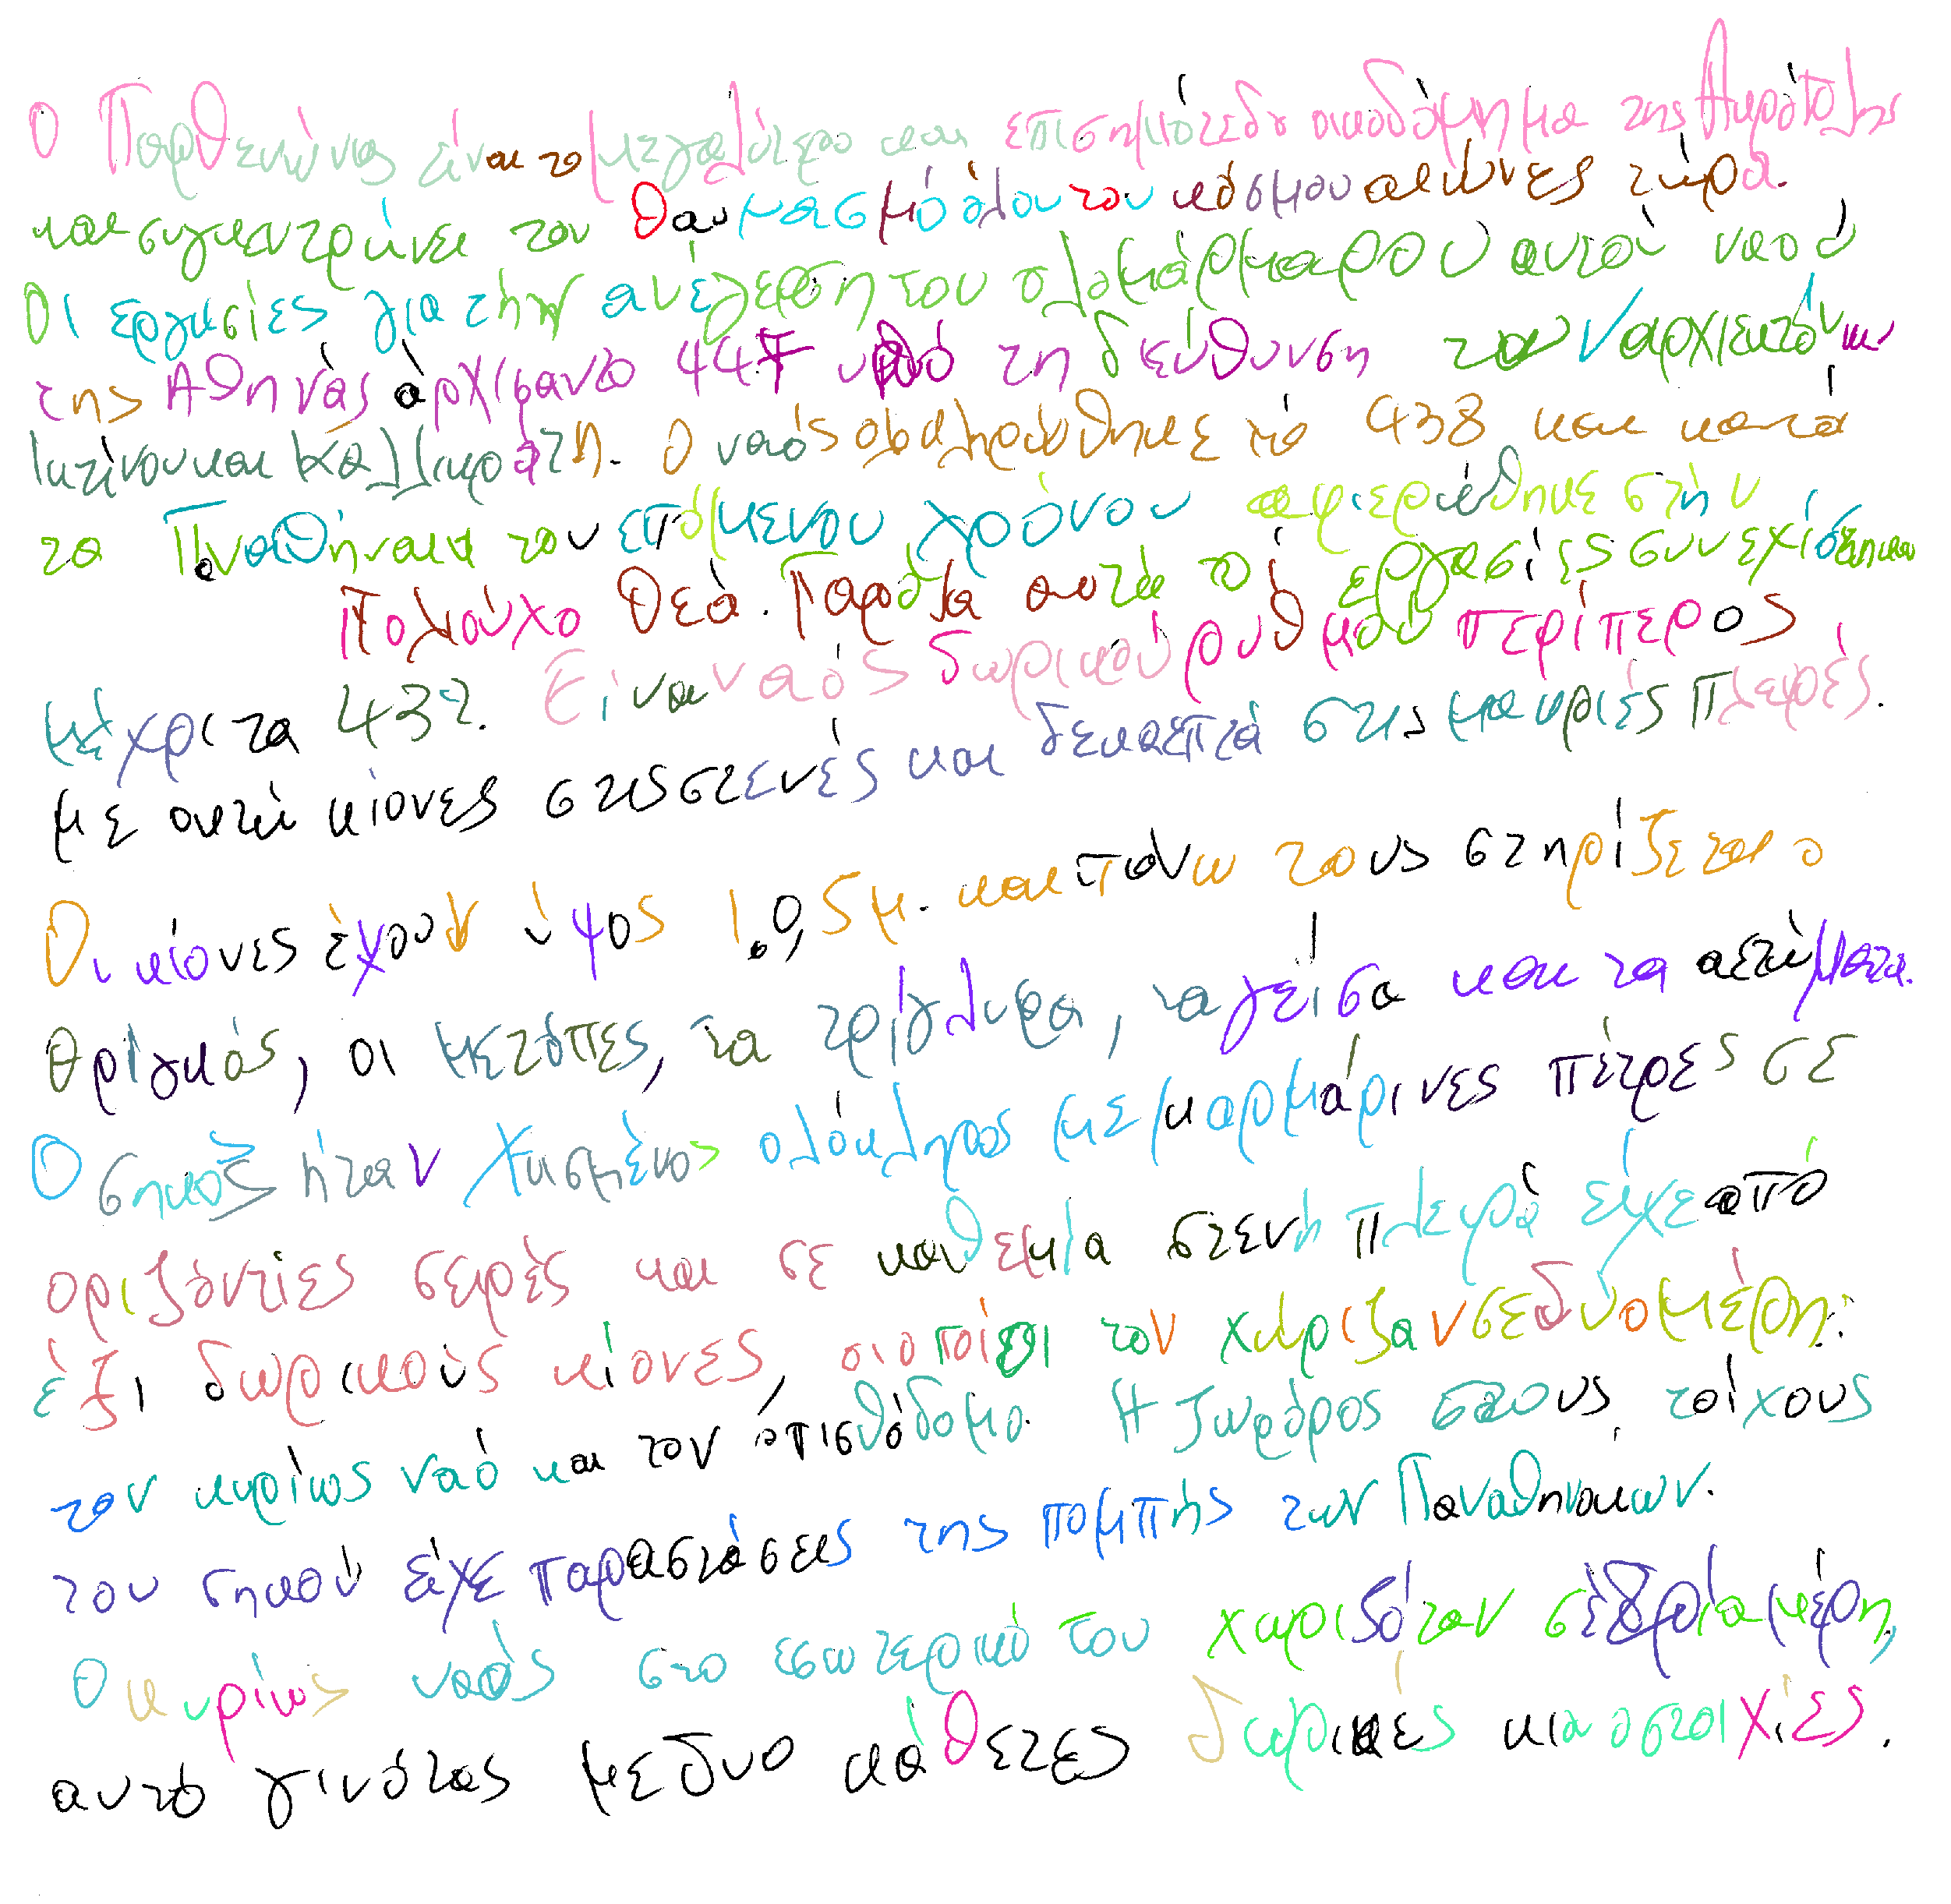 Ο Παρθενώνας είναι το μεγαλύτερο και επισημότεδο οικοδόμημα της Ακρόπολης
και συγκεντρώνει τον θαυμασμό όλου του κόσμου αιώνες τώρα.
Οι εργασίες για την ανέγερση του ολομάρμαρου αυτού ναού
της Αθηνάς άρχισαν το 447 υπό τη διεύθυνση των αρχιτεκτόνων
Ικτίνου και Καλλικράτη. Ο ναός ολοκληρώθηκε το 438 και κατά
τα Παναθήναια του επόμενου χρόνου αφιερώθηκε στην
Πολιούχο Θεά. Παρόλα αυτά οι εργασίες συνεχίστηκαν
μέχρι τα 432. Είναι ναός δωρικού ρυθμού περίπερος,
με οκτώ κίονες στις στενές και δεκαεπτά στις μακριές πλευρές.
Οι κίονες έχουν ύψος 10,5 μ. και πάνω τους στηρίζεται ο
θριγκός, οι μετόπες, τα τρίγλυφα, τα γείσα και τα αετώματα.
Ο σηκός ήταν χτισμένος ολόκληρος με μαρμάρινες πέτρες σε
οριζόντιες σειρές και σε καθεμία στενή πλευρά είχε από
έξι δωρικούς κίονες, οι οποίοι τον χώριζαν σε δύο μέρη:
τον κυρίως ναό και τον οπισθόδομο. Η ζωφόρος στους τοίχους
του σηκού είχε παραστάσεις της πομπής των Παναθηναίων.
Ο κυρίως ναός στο εσωτερικό του χωριζόταν σε τρία μέρη,
αυτό γινόταν με δυο κάθετες δωρικές κιονοστοιχίες.